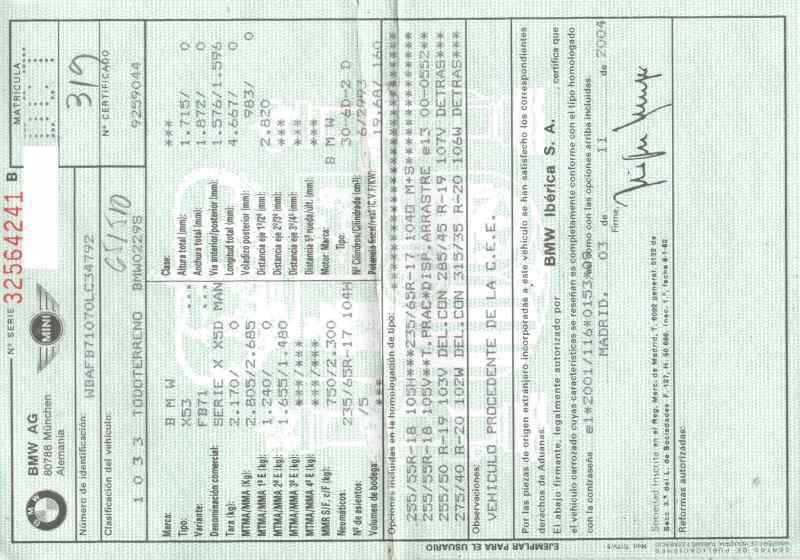 BMW AG
80788 München
Alemania
MINI
Nº SERIE 32564241 B
MATRICULA
Número de identificación: WBAFB71070LC34792
319
Clasificación del vehículo:
Nº CERTIFICADO
1 0 3 3 TODOTERRENO BMW0229S 9259044
Marca: B M W
Tipo: X53
Variante: FB71 ***
Denominación comercial: SERIE X X5D MAN
Tara (kg): 2.170/ 0
MTMA/MMA (Kg): 2.805/2.685
MTMA/MMA 1º E (kg): 1.240/ 0
MTMA/MMA 2º E (kg): 1.655/1.480
MTMA/MMA 3º E (kg): ***/***
MTMA/MMA 4º E (kg): ***/***
MMR S/F. c/f (kg): 750/2.300
Neumáticos: 235/65R-17 104H
Nº de asientos: /5
Volumen de bodega: ***
Clase: ***
Altura total (mm): 1.715/ 0
Anchura total (mm): 1.872/ 0
Vía anterior/posterior (mm): 1.576/1.596
Longitud total (mm): 4.667/ 0
Voladizo posterior (mm): 983/ 0
Distancia eje 1º/2º (mm): 2.820
Distancia eje 2º/3º (mm): ***
Distancia eje 3º/4º (mm): ***
Distancia 5ª rueda/últ. (mm): ***
Motor: Marca: B M W
Tipo: 30-6D-2 D
Nº Cilindros/Cilindrada (cm³): 6/2993
Potencia fiscal/real (C.V.F/KW): 19.68/ 160
Opciones incluidas en la homologación de tipo:
255/55R-18 105H***235/65R-17 104Q M+S
255/55R-18 105V**T.PRAC*DISP.ARRASTRE e13 00-0552**
255/50 R-19 103V DEL.CON 285/45 R-19 107V DETRAS***
275/40 R-20 102W DEL.CON 315/35 R-20 106W DETRAS***
Observaciones:
VEHICULO PROCEDENTE DE LA C.E.E.
Por las piezas de origen extranjero incorporadas a este vehículo se han satisfecho los correspondientes
derechos de Aduanas.
El abajo firmante, legalmente autorizado por BMW Ibérica S. A. certifica que
el vehículo carrozado cuyas características se reseñan es completamente conforme con el tipo homologado
con la contraseña e1*2001/116*0153*09 así como con las opciones arriba incluidas.
MADRID, 03 de 11 de 2004
Firma,
Sociedad inscrita en el Reg. Merc. de Madrid, T. 6002 general, 5192 de
Secc. 3.ª del L. de Sociedades F. 127, H. 50 666, Insc. 1.ª, fecha
Reformas autorizadas:
EJEMPLAR PARA EL USUARIO